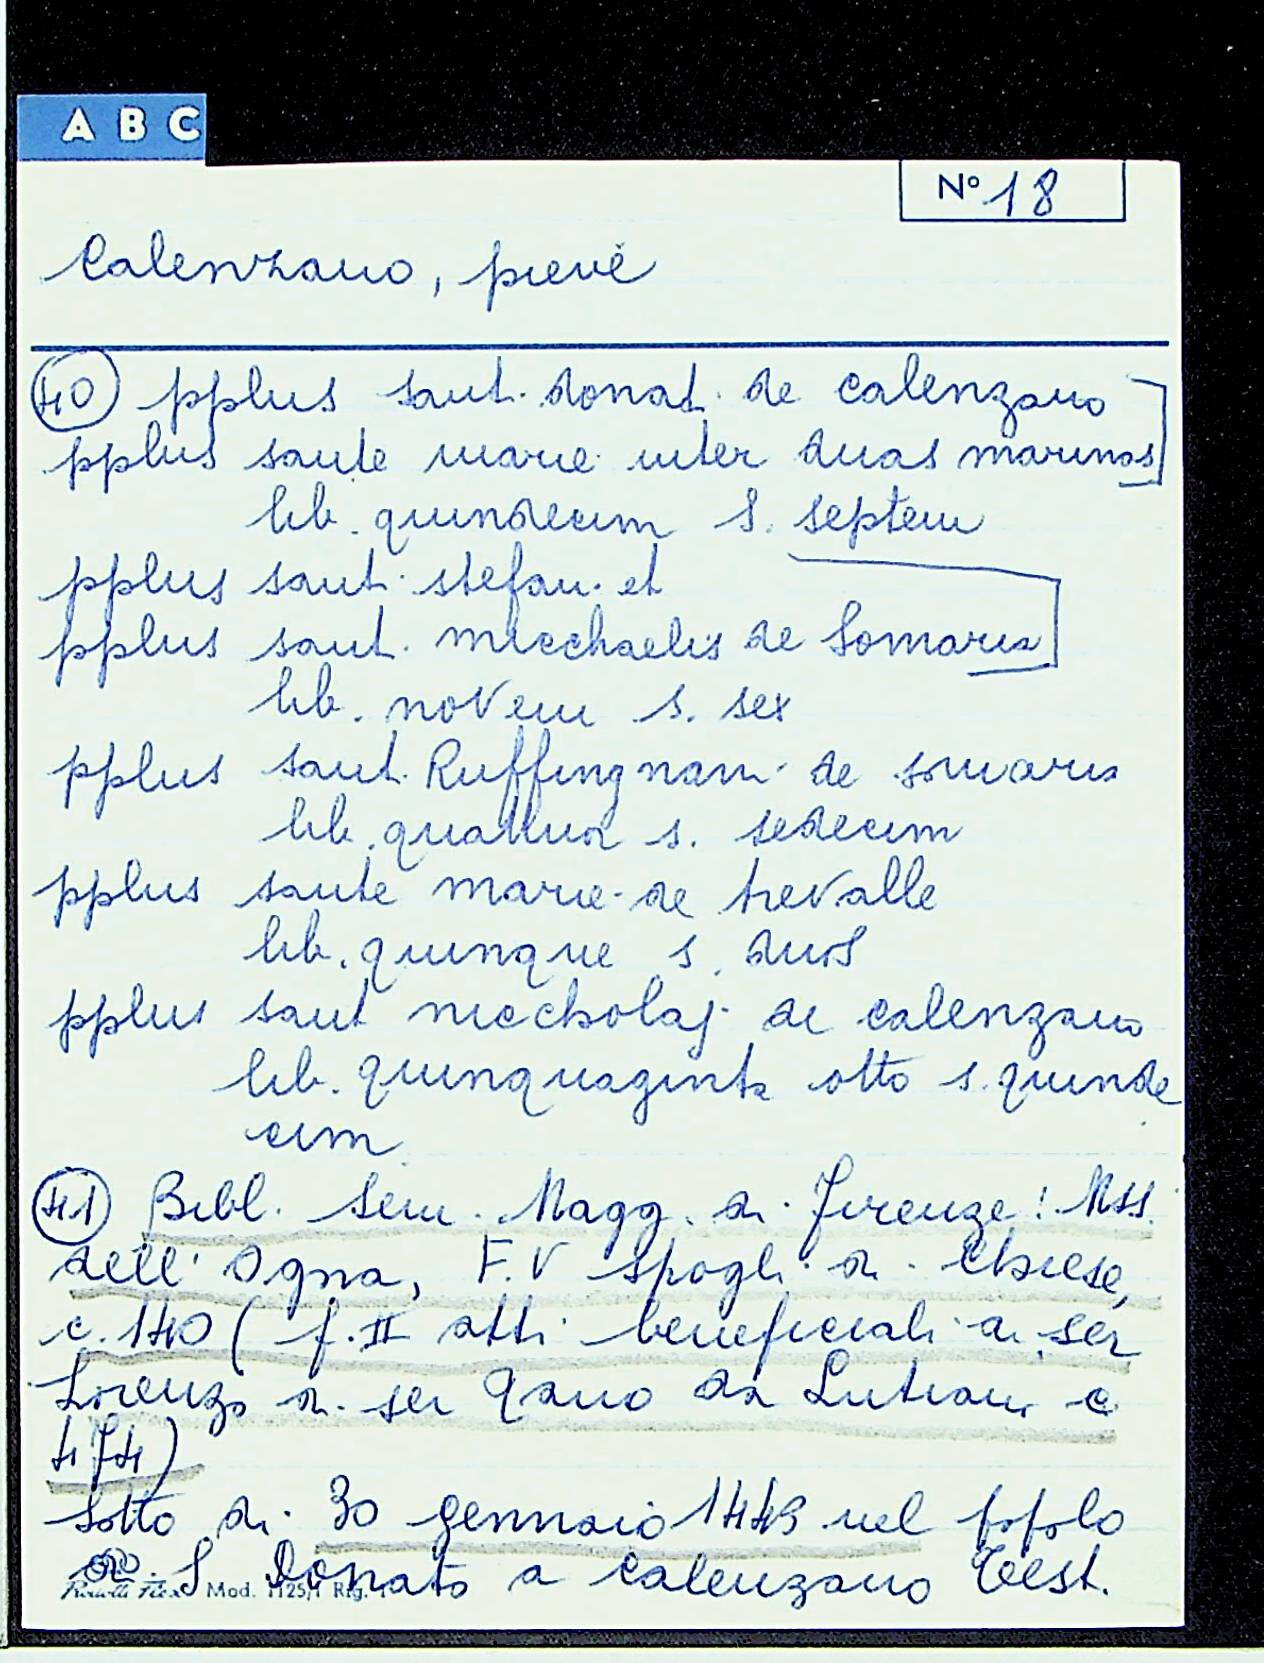 A B C
N° 18
Calenzano, pieve
40 pplus sant. donat. de calenzano
pplus sante marie inter duas marinas
lib. quindecim s. septem
pplus sant. stefan. et
pplus sant. micchaelis de Somaria
lib. novem s. sex
pplus sant. Ruffingnam. de somaria
lib. quattuor s. sedecim
pplus sante marie de trevalle
lib. quinque s. duos
pplus sant niccholaj. de calenzano
lib. quinquaginta otto s. quinde
cim
41 Bibl. Sem. Magg. di Firenze: Mss.
dell'Ogna, F.V spogli di Chiese,
c. 140 (f. II atti beneficiali di ser
Lorenzo di ser Gano da Lutiano c
474)
Sotto di 30 gennaio 1449 nel popolo
di S Donato a Calenzano Test.
Mod. 1125/1 Rig.